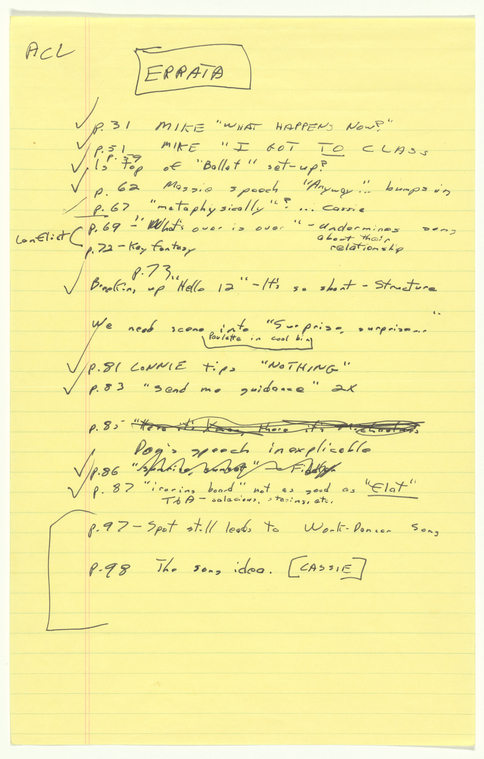 ACL
ERRATA
p.31 MIKE "WHAT HAPPENS NOW?"
p.51 MIKE "I GOT TO CLASS
p.39
Is top of "Ballet" set-up?
p. 62 Massie speech "Anyway..." bumps in
p.67 "metaphysically"? ... Cassie
Conflict
p.69 - "What's over is over" - undermines song
about their
relationship
p.72 - Key fantasy
p.73
Breaking up "Hello 12" - It's so short - Structure
We need scene into "Surprise, surprise"
Paulette in cool
p.81 CONNIE tips "NOTHING"
p.83 "Send me guidance" 2X
p.85
Dog's speech inexplicable
p.86
p. 87 "ironing board" not as good as "Flat"
T&A - salacious, etc.
p.97 - Spot still leads to Work-Dancer song
p.98 The song idea. [CASSIE]